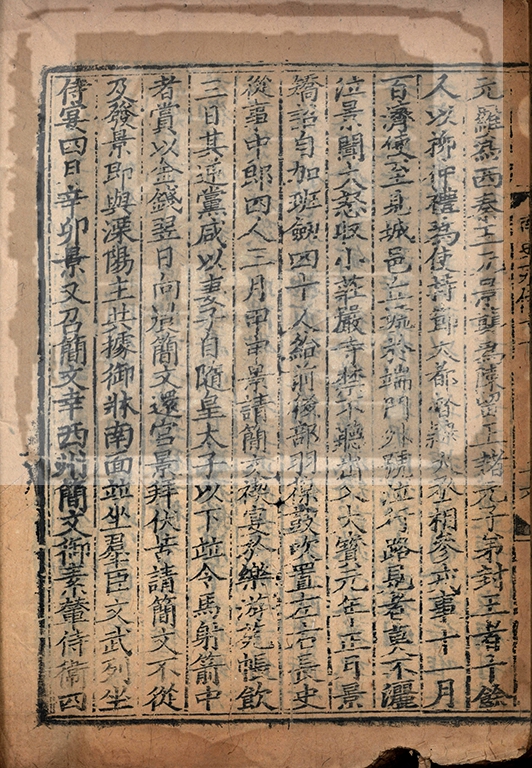 元羅為西秦王元景襲為陳留王諸元子弟封王者十餘
人以柳仲禮為使持節大都督隸大丞相參戎事十一月
百濟使至見城邑丘墟於端門外號泣行路見者莫不灑
泣景聞大怒收小莊嚴寺禁不聽出入大寶元年正月景
矯詔自加班劒四十人給前後部羽葆鼓吹置左右長史
從事中郎四人三月甲申景請簡文禊宴於樂游苑帳飲
三日其逆黨咸以妻子自隨皇太子以下並令馬射箭中
者賞以金錢翌日向晨簡文還宮景拜伏苦請簡文不從
及發景即與溧陽主共據御牀南面並坐羣臣文武列坐
侍宴四日辛卯景又召簡文幸西州簡文御素輦侍衛四